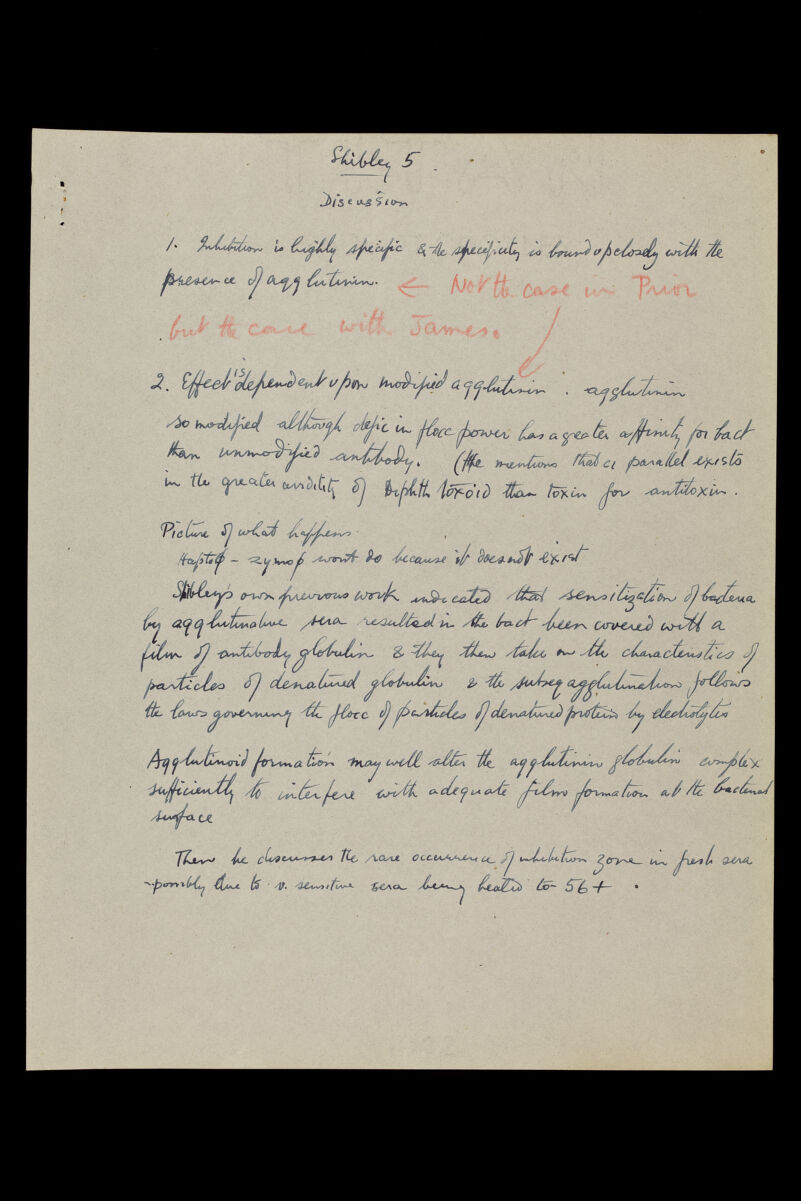 Shibley 5
Discussion
1. Inhibition is highly specific & the specificity is bound up closely with the
presence of agglutinin. ← Not the case in Prior
but the case with James.
2. Effect is dependent upon modified agglutinin. agglutinin
so modified although defic in flocc power has a greater affinity for bact
than unmodified antibody. (He mentions that a parallel exists
in the greater avidity of Diphth toxoid than toxin for antitoxin.
Picture of what happens.
Haptoϕ - zymoϕ wont do because it does not exist
Shibley's own previous work indicated that sensitization of bacteria
by agglutinative sera resulted in the bact been covered with a
film of antibody globulin & they then take on the characteristics of
particles of denatured globulin & the subseq agglutination follows
the laws governing the flocc of particles of denatured protein by electrolytes
Agglutinoid formation may well alter the agglutinin globulin complex
sufficiently to interfere with adequate film formation at the bacterial
surface
Then he discusses the rare occurrence of inhibition zone in fresh sera
- possibly due to v. sensitive sera being heated to 56+.